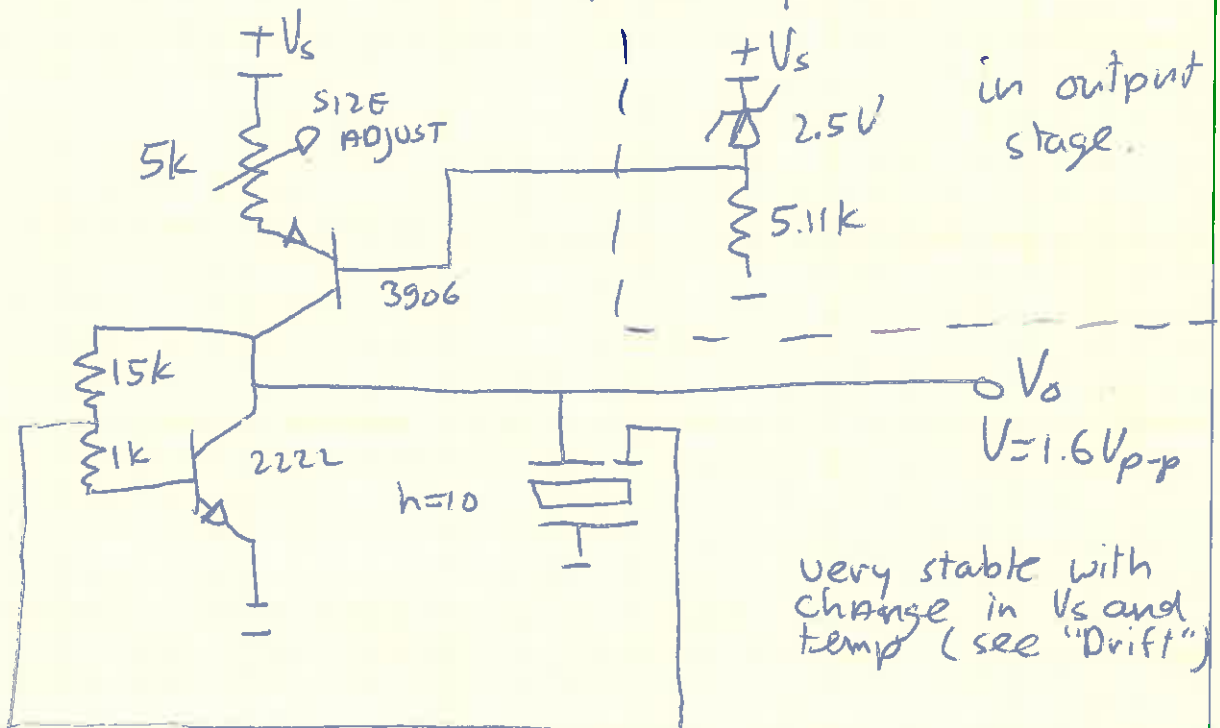 +Vs
SIZE
ADJUST
5k
+Vs
2.5V
in output
stage
5.11k
3906
15k
1k
2222
h=10
Vo
V=1.6Vp-p
very stable with
change in Vs and
temp (see "Drift")